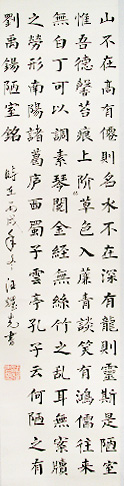 山不在高有僊則名水不在深有龍則靈斯是陋室
惟吾德馨苔痕上階草色入簾青談笑有鴻儒往來
無白丁可以調素琴閱金經無絲竹之亂耳無案牘
之勞形南陽諸葛廬西蜀子雲亭孔子云何陋之有
劉禹錫陋室銘
時在丙戌年冬汪先書